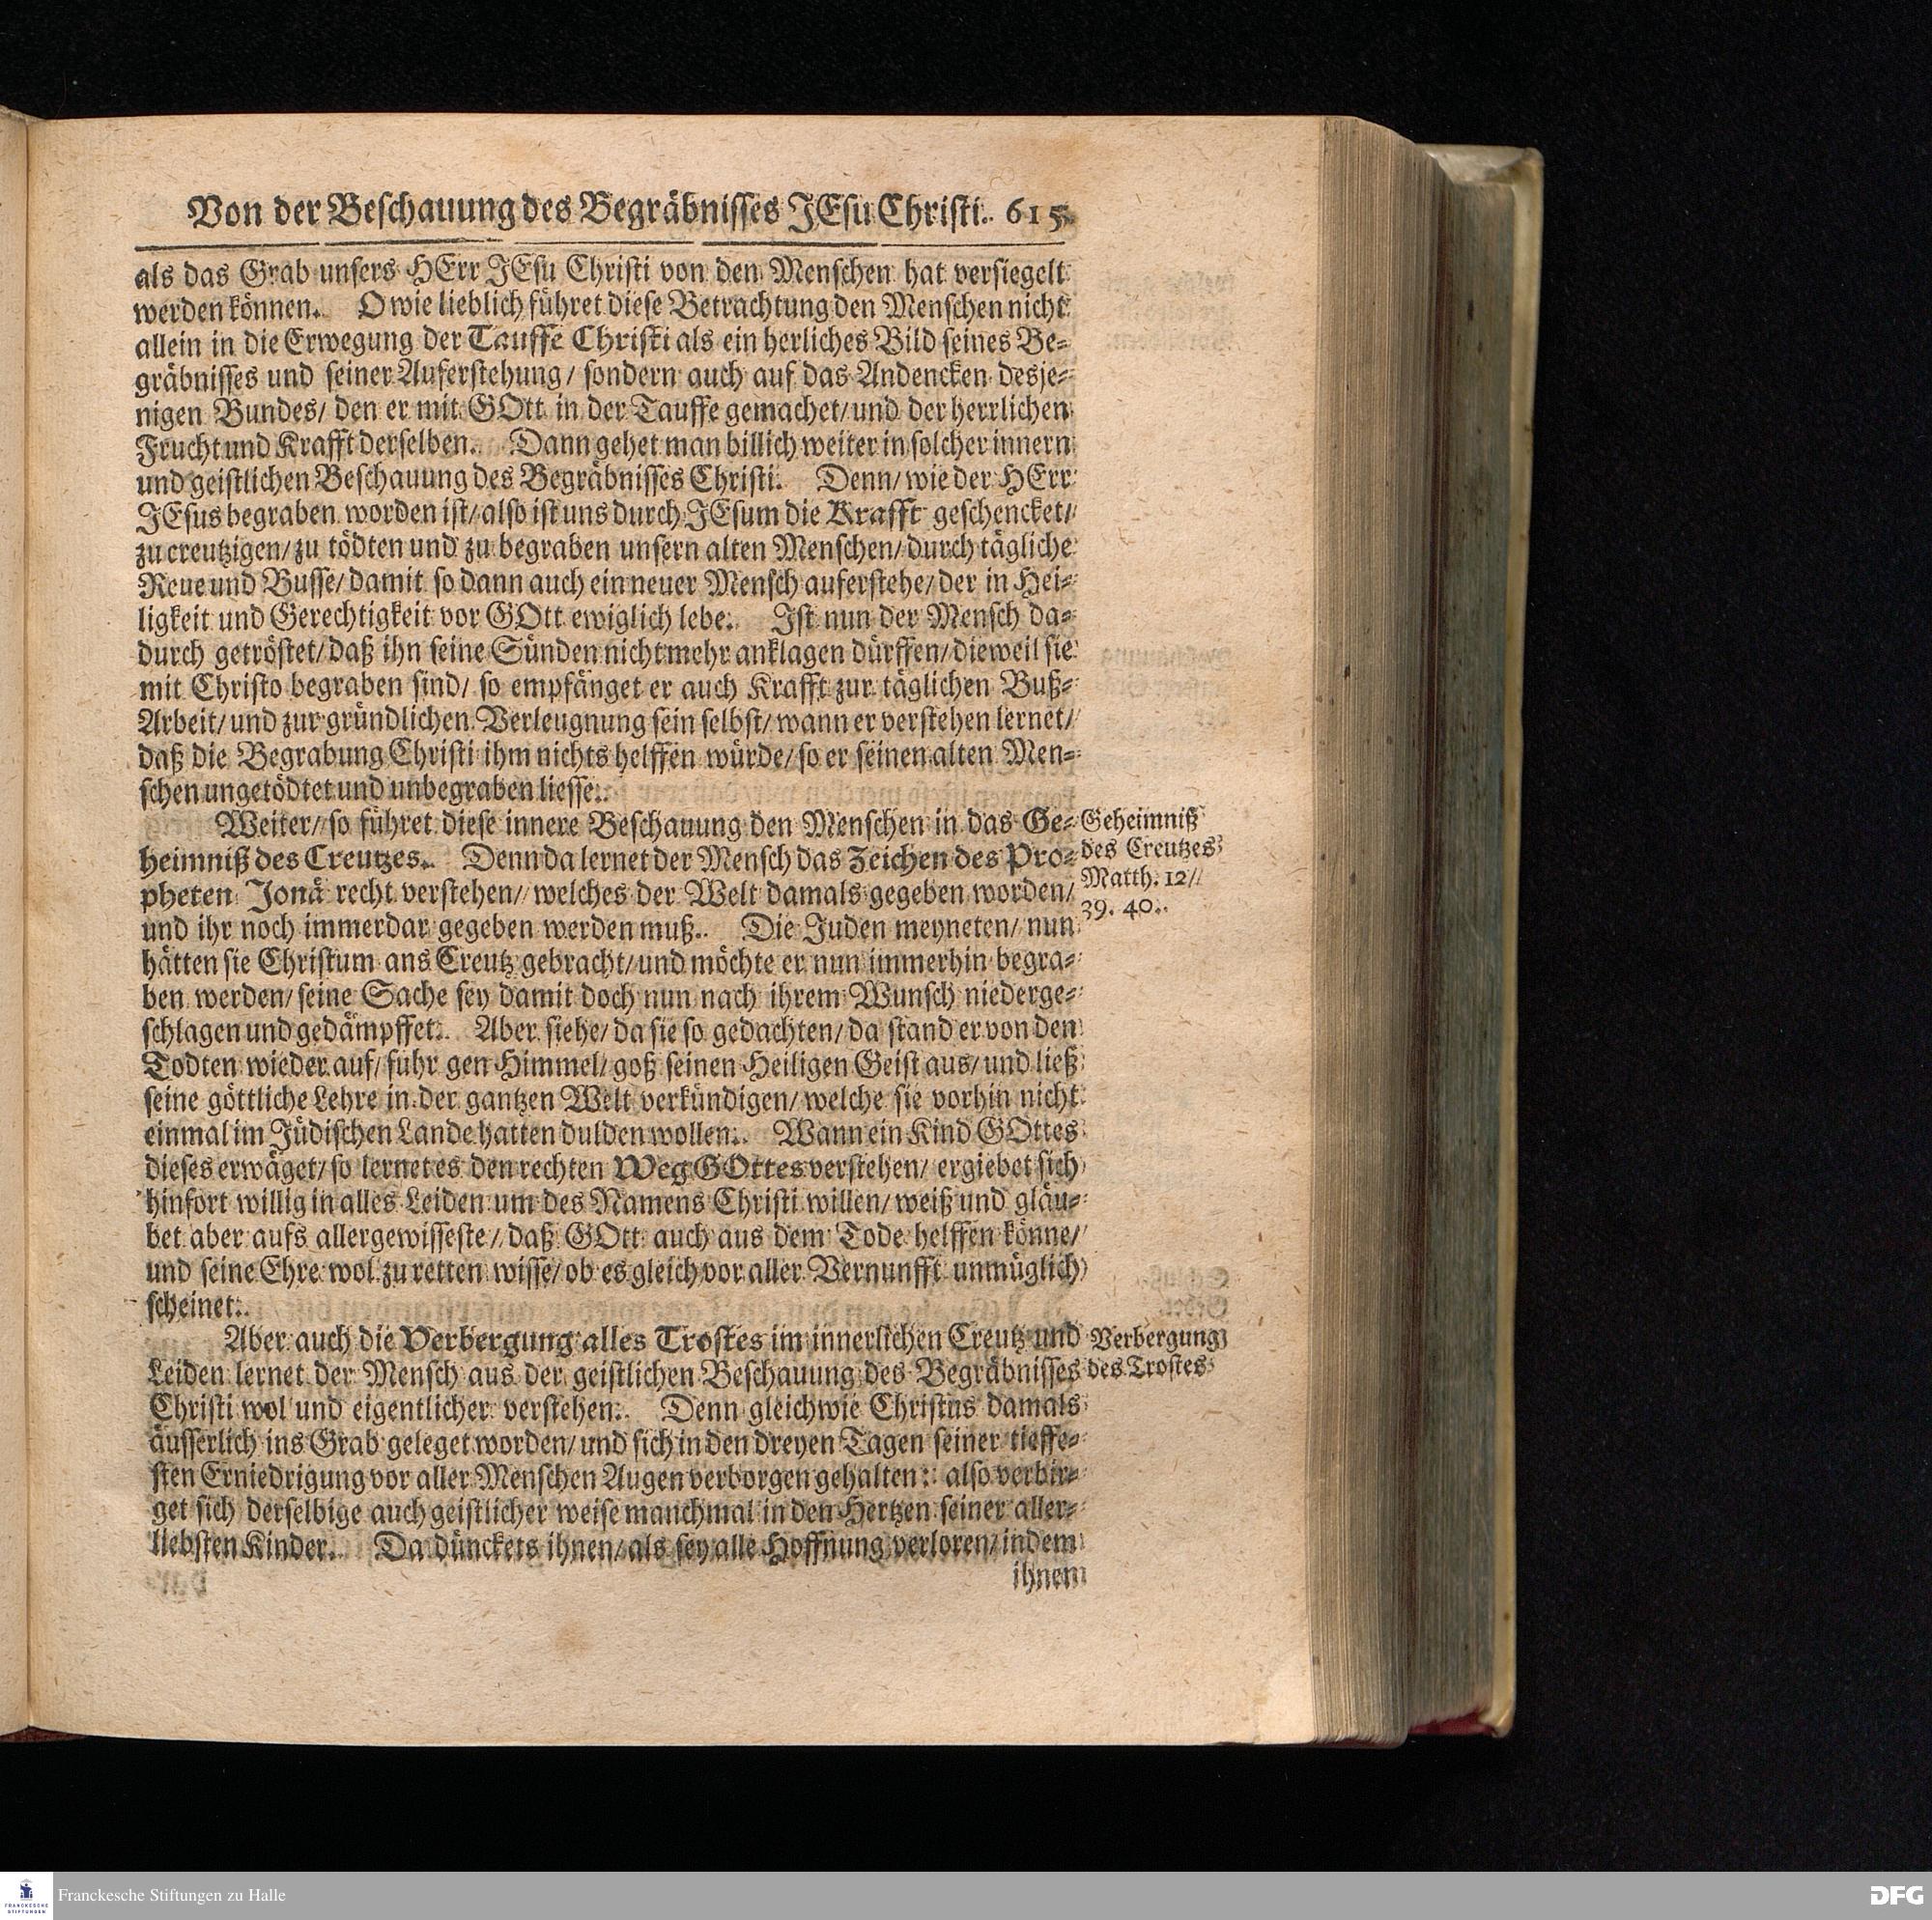 Von der Beschauung des Begräbnisses JEsu Christi. 615
als das Grab unsers HErr JEsu Christi von den Menschen hat versiegelt
werden können. O wie lieblich führet diese Betrachtung den Menschen nicht
allein in die Erwegung der Tauffe Christi als ein herliches Bild seines Be-
gräbnisses und seiner Auferstehung/ sondern auch auf das Andencken desje-
nigen Bundes/ den er mit GOtt in der Tauffe gemachet/ und der herrlichen
Frucht und Krafft derselben. Dann gehet man billich weiter in solcher innern
und geistlichen Beschauung des Begräbnisses Christi. Denn/ wie der HErr
JEsus begraben worden ist/ also ist uns durch JEsum die Krafft geschencket/
zu creutzigen/ zu tödten und zu begraben unsern alten Menschen/ durch tägliche
Reue und Busse/ damit so dann auch ein neuer Mensch auferstehe/ der in Hei-
ligkeit und Gerechtigkeit vor GOtt ewiglich lebe. Ist nun der Mensch da-
durch getröstet/ daß ihn seine Sünden nicht mehr anklagen dürffen/ dieweil sie
mit Christo begraben sind/ so empfänget er auch Krafft zur täglichen Buß-
Arbeit/ und zur gründlichen Verleugnung sein selbst/ wann er verstehen lernet/
daß die Begrabung Christi ihm nichts helffen würde/ so er seinen alten Men-
schen ungetödtet und unbegraben liesse.
Weiter/ so führet diese innere Beschauung den Menschen in das Ge-
heimniß des Creutzes. Denn da lernet der Mensch das Zeichen des Pro-
pheten Jonä recht verstehen/ welches der Welt damals gegeben worden/
und ihr noch immerdar gegeben werden muß. Die Juden meyneten/ nun
hätten sie Christum ans Creutz gebracht/ und möchte er nun immerhin begra-
ben werden/ seine Sache sey damit doch nun nach ihrem Wunsch niederge-
schlagen und gedämpffet. Aber siehe/ da sie so gedachten/ da stand er von den
Todten wieder auf/ fuhr gen Himmel/ goß seinen Heiligen Geist aus/ und ließ
seine göttliche Lehre in der gantzen Welt verkündigen/ welche sie vorhin nicht
einmal im Jüdischen Lande hatten dulden wollen. Wann ein Kind GOttes
dieses erwäget/ so lernet es den rechten Weg GOttes verstehen/ ergiebet sich
hinfort willig in alles Leiden um des Namens Christi willen/ weiß und gläu-
bet aber aufs allergewisseste/ daß GOtt auch aus dem Tode helffen könne/
und seine Ehre wol zu retten wisse/ ob es gleich vor aller Vernunfft unmüglich
scheinet.
Aber auch die Verbergung alles Trostes im innerlichen Creutz und
Leiden lernet der Mensch aus der geistlichen Beschauung des Begräbnisses
Christi wol und eigentlicher verstehen. Denn gleichwie Christus damals
äusserlich ins Grab geleget worden/ und sich in den dreyen Tagen seiner tieffe-
sten Erniedrigung vor aller Menschen Augen verborgen gehalten: also verbir-
get sich derselbige auch geistlicher weise manchmal in den Hertzen seiner aller-
liebsten Kinder. Da dünckets ihnen/ als sey alle Hoffnung verloren/ indem
ihnen
Geheimniß
des Creutzes
Matth. 12/
39. 40.
Verbergung
des Trostes
Franckesche Stiftungen zu Halle
FRANCKESCHE
STIFTUNGEN
DFG